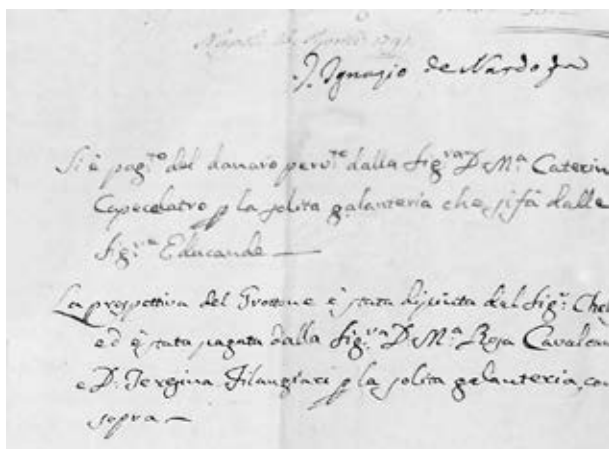 Napoli 1791
D. Ignazio de Nardo
Si è pag.to del danaro perv.to dalla Sig.ra D. M.a Caterin
Capecelatro p la solita galanteria che si fà dalle
Sig.re Educande —
La prospettiva del Trottone è stata dipinta dal Sig.r Che
ed è stata pagata dalla Sig.ra D. M.a Rosa Cavalcan
e D. Teresina Filangiari p la solita galanteria, co
sopra —